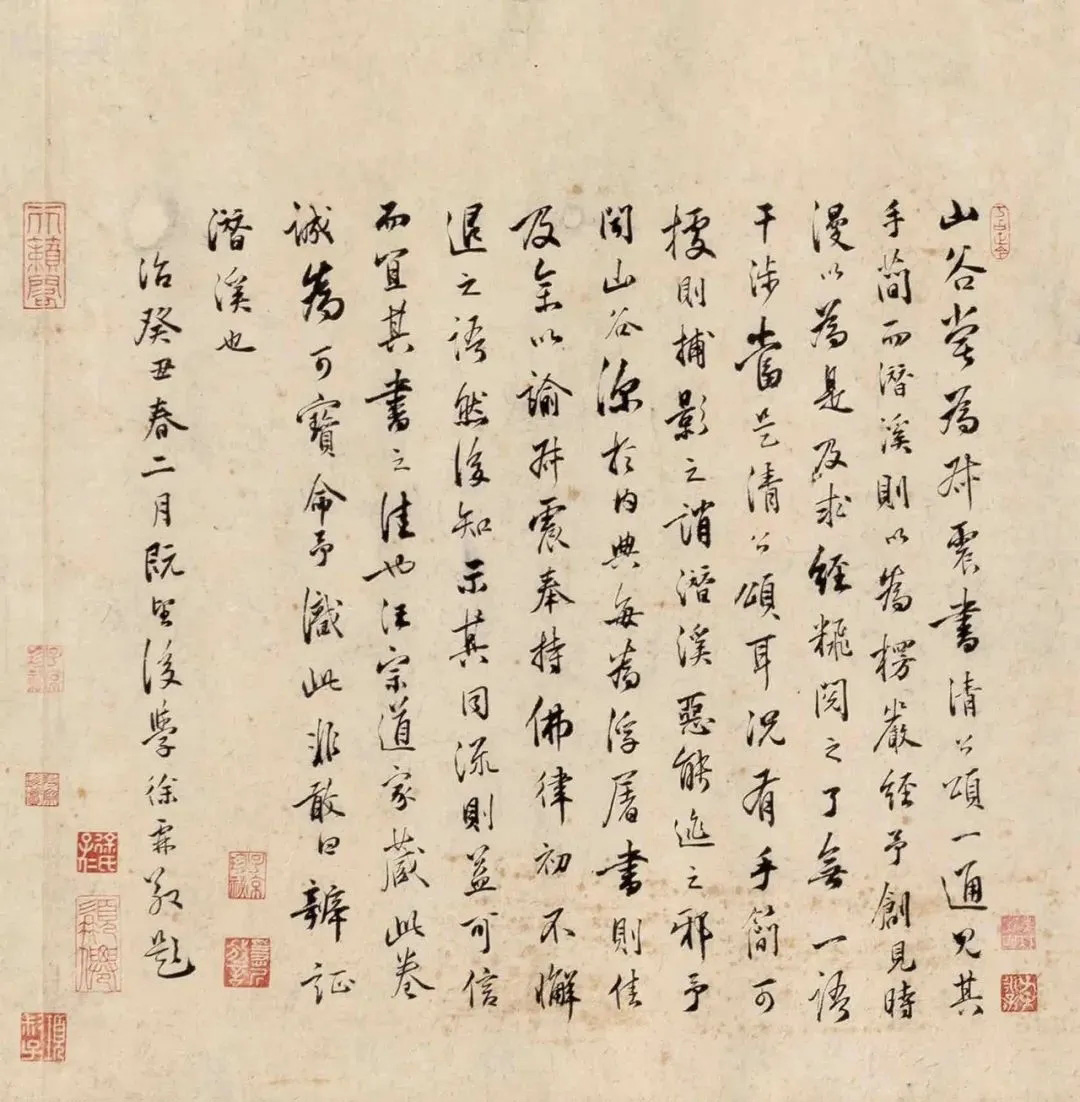 山谷嘗為叔震書清公頌一通見其
手簡而潛溪則以為楞嚴經予創見時
漫以為是及求經閱之了無一語
干涉當是清公頌耳況有手簡可
據則捕影之誚潛溪惡能逃之邪予
聞山谷深於內典每為浮屠書則佳
及余以諭叔震奉持佛律初不懈
退之語然後知示其同流則益可信
而宜其書之佳也汪宗道家藏此卷
誠為可寶命予識此非敢曰辯証
潛溪也
治癸丑春二月既望後學徐霖敬題
徐氏子仁
天籟閣